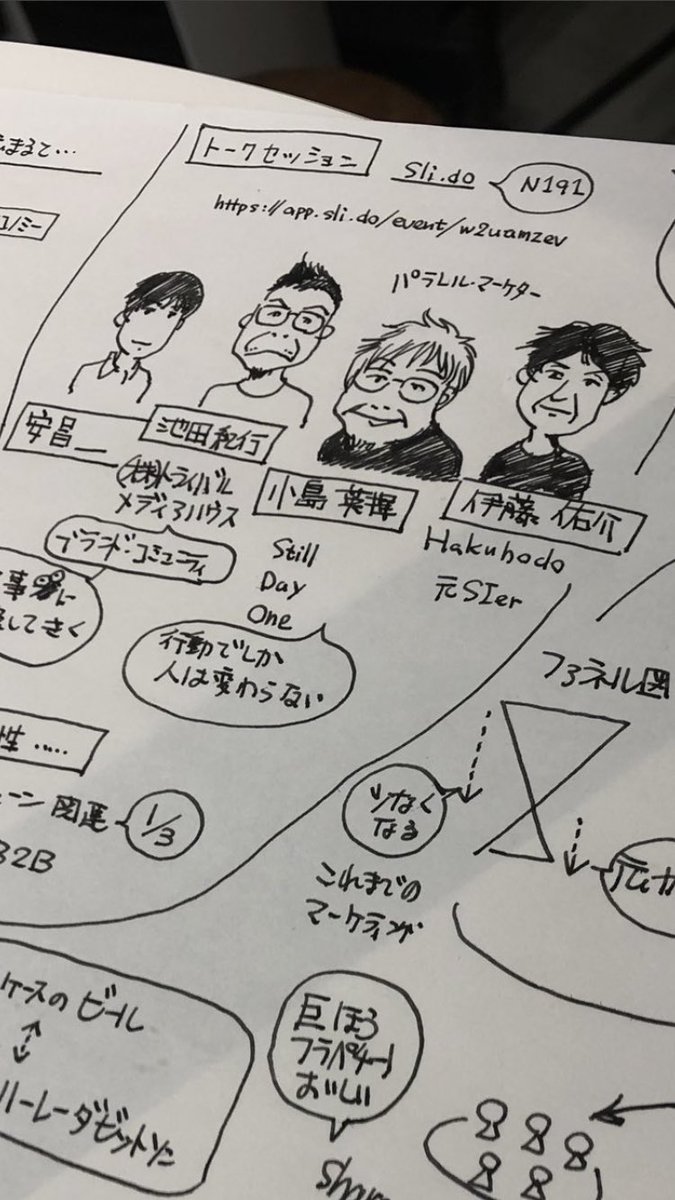 まるで…
トークセッション
Sli.do
N191
https://app.sli.do/event/w2uamzev
パラレル・マーケター
安昌_
池田紀行
(株)トライバル
メディアハウス
ブランド・コミュニティ
小島 英揮
Still
Day
One
行動でしか
人は変わらない
伊藤 佑介
Hakuhodo
元SIer
してきく
性……
関連
1/3
B2B
ファネル図
少なく
なる
これまでの
マーケティング
広が
ケースの ビール
ハーレーダビットソン
巨ほう
フラペチーノ
おいしい